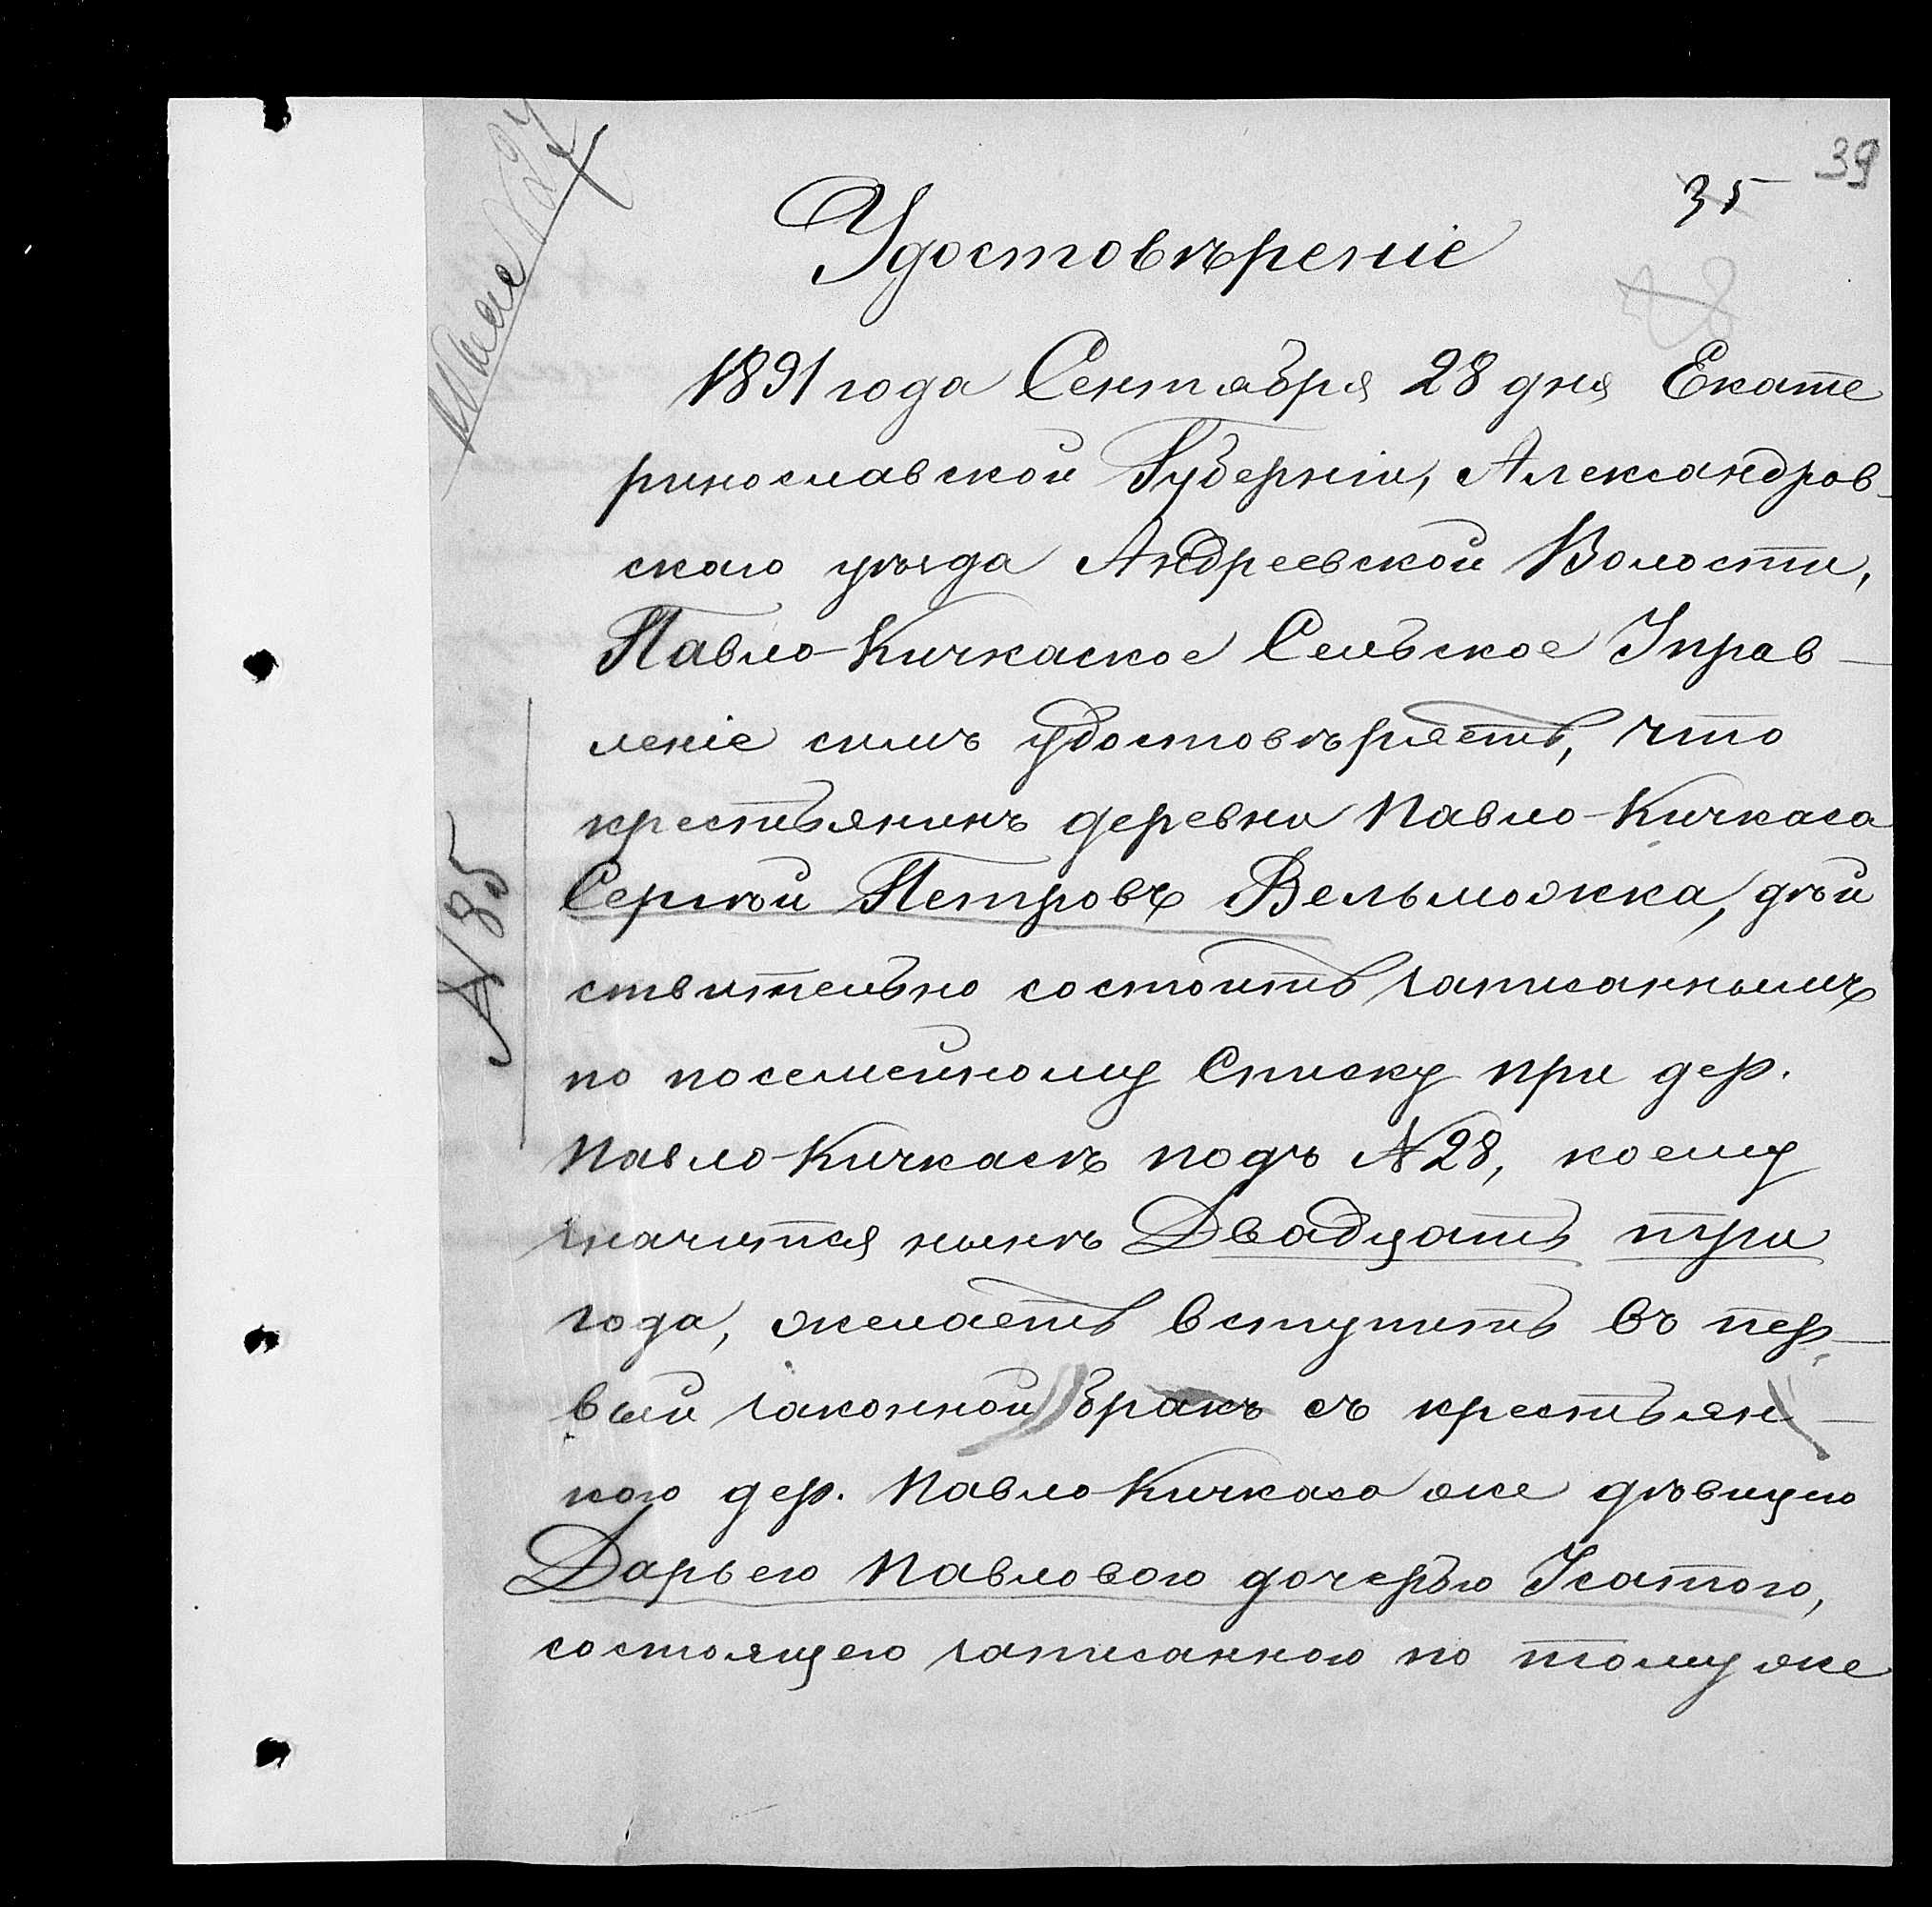 39
35
Удостовѣреніе
1891 года Сентября 28 дня Екате
ринославской Губерніи, Александров-
скаго уѣзда Андреевской Волости,
Павло-Кичкаское Сельское Управ-
леніе симъ удостовѣряетъ, что
крестьянинъ деревни Павло-Кичкаса
Сергѣй Петровъ Вельможка, дѣй
ствительно состоитъ записаннымъ
по посемейному Списку при дер.
Павло-Кичкасѣ подъ №28, коему
значится нынѣ Двадцать три
года, желаетъ вступить въ пер-
вый законной бракъ съ крестьян-
кою дер. Павло Кичкаса же дѣвицею
Дарьею Павловою дочерью Усатого,
состоящею записанною по тому же
№ 85